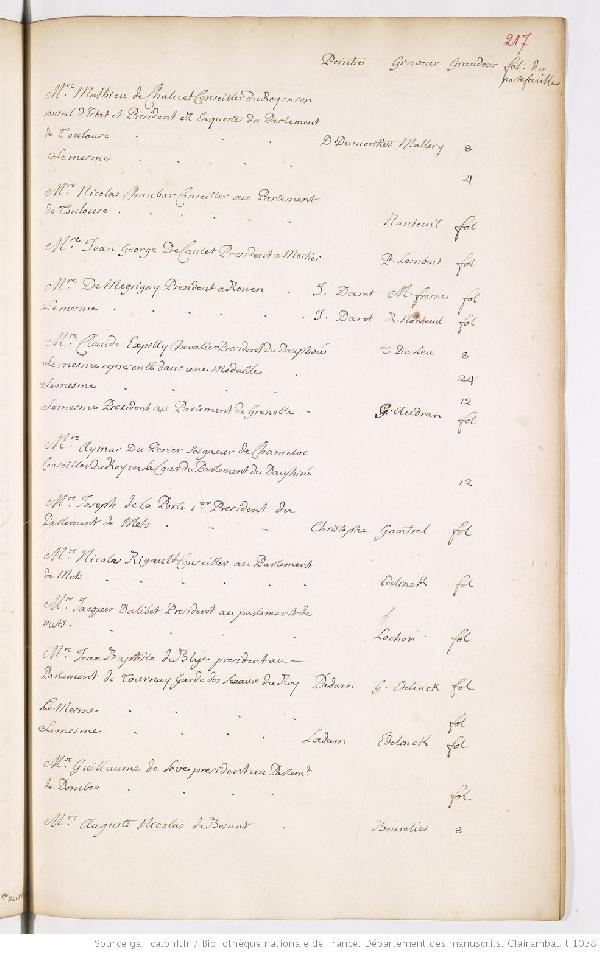 217
Peintre Graveur Grandeur fol. du
portefeuille
Mre. Mathieu de Chalvet Conseiller du Roy en son
conseil d'Etat et President es Enquestes du Parlement
de Toulouse . . . D Dumonstier Mallery 8
Le mesme . . . . 4
Mre Nicolas Chaubar Conseiller au Parlement
de Toulouse . . . . Nanteuil fol
Mre Jean George De Caulet President a Mortier P. Lombart fol
Mre De Megrigny President a Rouen . J. Daret M. frosne fol
Le mesme . . . . J. Daret R. Nanteuil fol
Mre Claude Expilly Chevalier President du Dauphiné T De Leu 8
Le mesme representé dans une Medaille . 24
Le mesme . . . . 12
Le mesme President au Parlement de Grenoble . G. Audran fol
Mre Aymar Du Perier Seigneur de Chameloc
Conseiller du Roy en la Cour du Parlement du Dauphiné 12
Mre Joseph de la Porte 1er President du
Parlement de Mets . . . Christophe Gantrel fol
Mre Nicolas Rigault Conseiller au Parlement
de Mets . . . . Edelinck fol
Mre Jacques Dalibet President au parlement de
mets . . . . Lochon fol
Mre Jean Baptiste de president au
Parlement de Tournay Garde des Sceaux du Roy Ladam G. Edelinck fol
Le Mesme . . . . fol
Le mesme . . . . Ladam Edelinck fol
Mre Guillaume de Seve president au Parlemt
de Dombes . . . . fol
Mre Auguste Nicolas de . 8
Source gallica.bnf.fr / Bibliothèque nationale de France. Département des manuscrits. Clairambault 1038